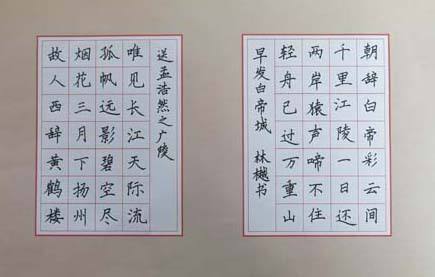 朝辞白帝彩云间
千里江陵一日还
两岸猿声啼不住
轻舟已过万重山
早发白帝城 林樾书
故人西辞黄鹤楼
烟花三月下扬州
孤帆远影碧空尽
唯见长江天际流
送孟浩然之广陵